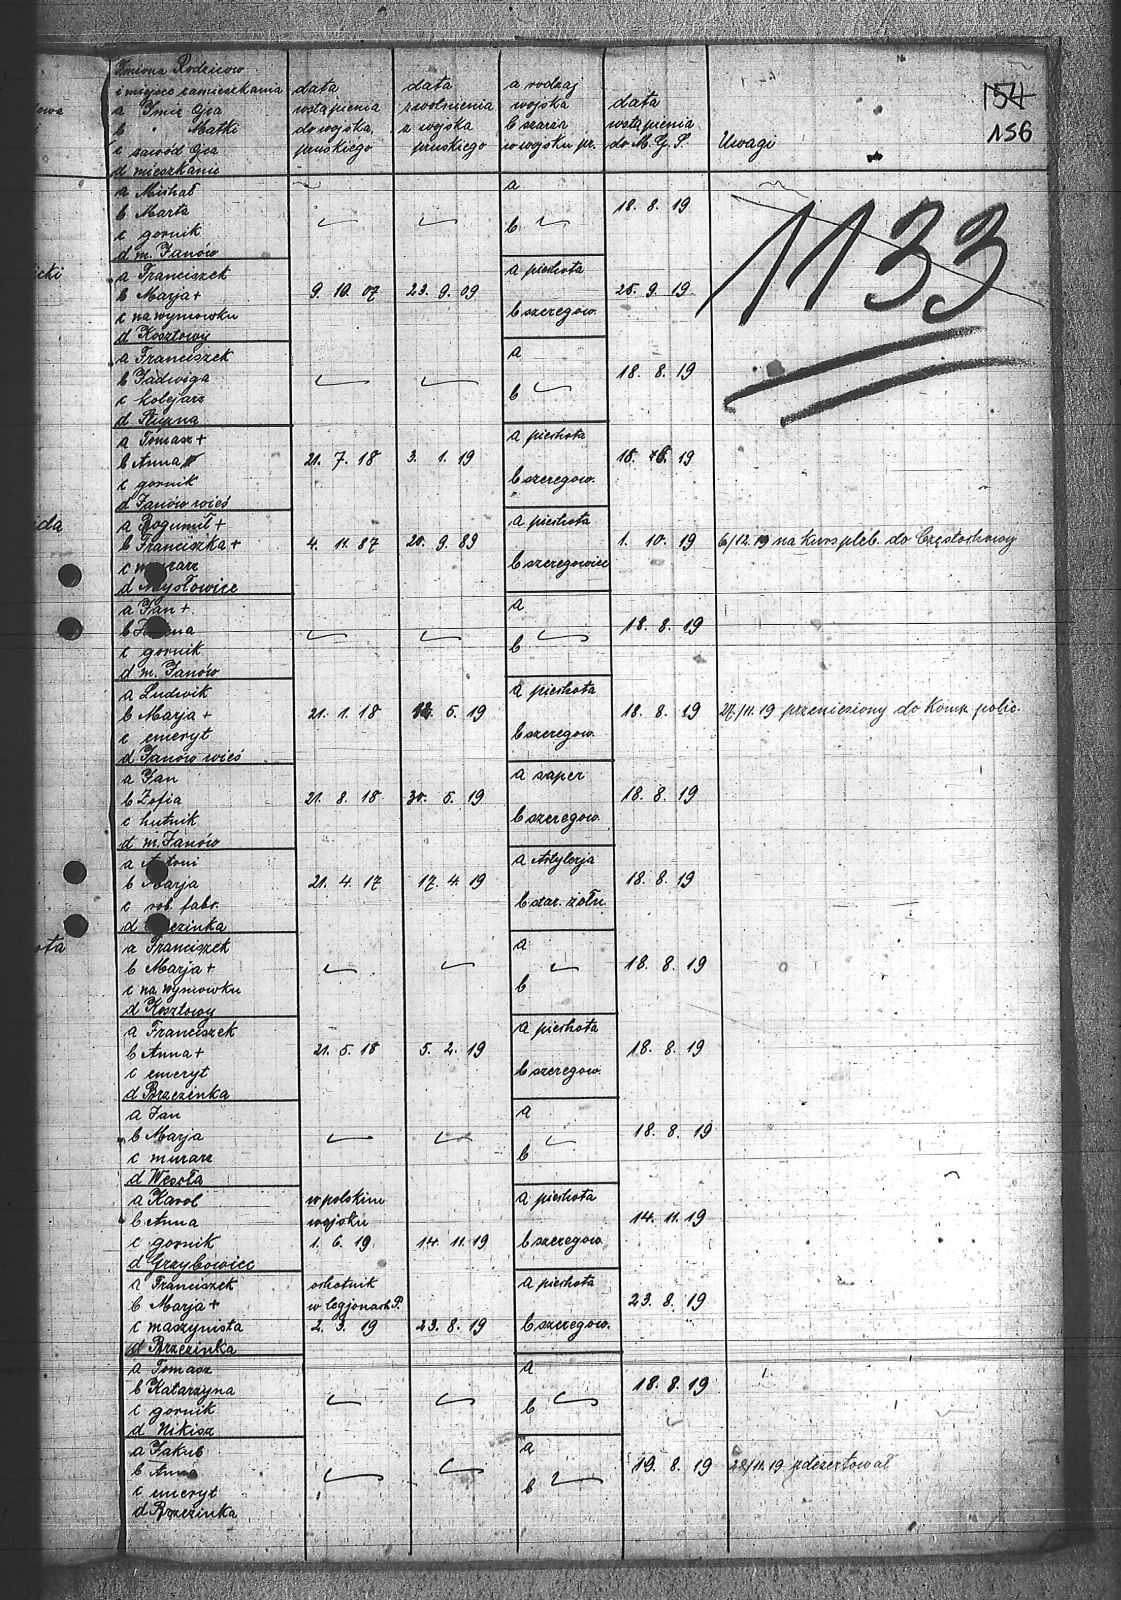 Imiona Rodziców
i miejsce zamieszkania
a Imię Ojca
b " Matki
c zawód Ojca
d mieszkanie
data
wstąpienia
do wojska
pruskiego
data
zwolnienia
z wojska
pruskiego
a rodzaj
wojska
b szarża
w wojsku pr.
data
wstąpienia
do M. G. S.
Uwagi
154
156
1133
a Michał
b Marta
c gornik
d m. Janów
a
b
18. 8. 19
a Franciszek
b Marja +
c na wymowku
d Kosztowy
9. 10. 07
23. 9. 09
a piechota
b szeregow.
25. 9. 19
a Franciszek
b Jadwiga
c kolejarz
d Słupna
a
b
18. 8. 19
a Tomasz +
b Anna
c gornik
d Janów wieś
21. 7. 18
3. 1. 19
a piechota
b szeregow.
18. 19
a Bogumił +
b Franciszka +
c murarz
d Mysłowice
4. 11. 87
20. 9. 89
a piechota
b szeregowiec
1. 10. 19
6/12.19 na kurs pleb. do Częstochowy
a Jan +
b
c gornik
d m. Janów
a
b
18. 8. 19
a Ludwik
b Marja +
c emeryt
d Janów wieś
21. 1. 18
5. 19
a piechota
b szeregow.
18. 8. 19
27/11.19 przeniesiony do Komp. polic.
a Jan
b Zofia
c hutnik
d m. Janów
21. 8. 18
30. 5. 19
a saper
b szeregow.
18. 8. 19
a Antoni
b Marja
c rob. fabr.
d Brzezinka
21. 4. 17
17. 4. 19
a Artylerja
b star. żołn.
18. 8. 19
a Franciszek
b Marja +
c na wymowku
d Kosztowy
a
b
18. 8. 19
a Franciszek
b Anna +
c emeryt
d Brzezinka
21. 5. 18
5. 2. 19
a piechota
b szeregow.
18. 8. 19
a Jan
b Marja
c murarz
d Wesoła
a
b
18. 8. 19
a Karol
b Anna
c gornik
d Grzybowiec
w polskim
wojsku
1. 6. 19
14. 11. 19
a piechota
b szeregow.
14. 11. 19
a Franciszek
b Marja +
c maszynista
d Brzezinka
ochotnik
w legjonach P.
2. 3. 19
23. 8. 19
a piechota
b szeregow.
23. 8. 19
a Tomasz
b Katarzyna
c gornik
d Nikisz
a
b
18. 8. 19
a Jakub
b Anna
c emeryt
d Brzezinka
a
b
19. 8. 19
28/11.19 zdezertował